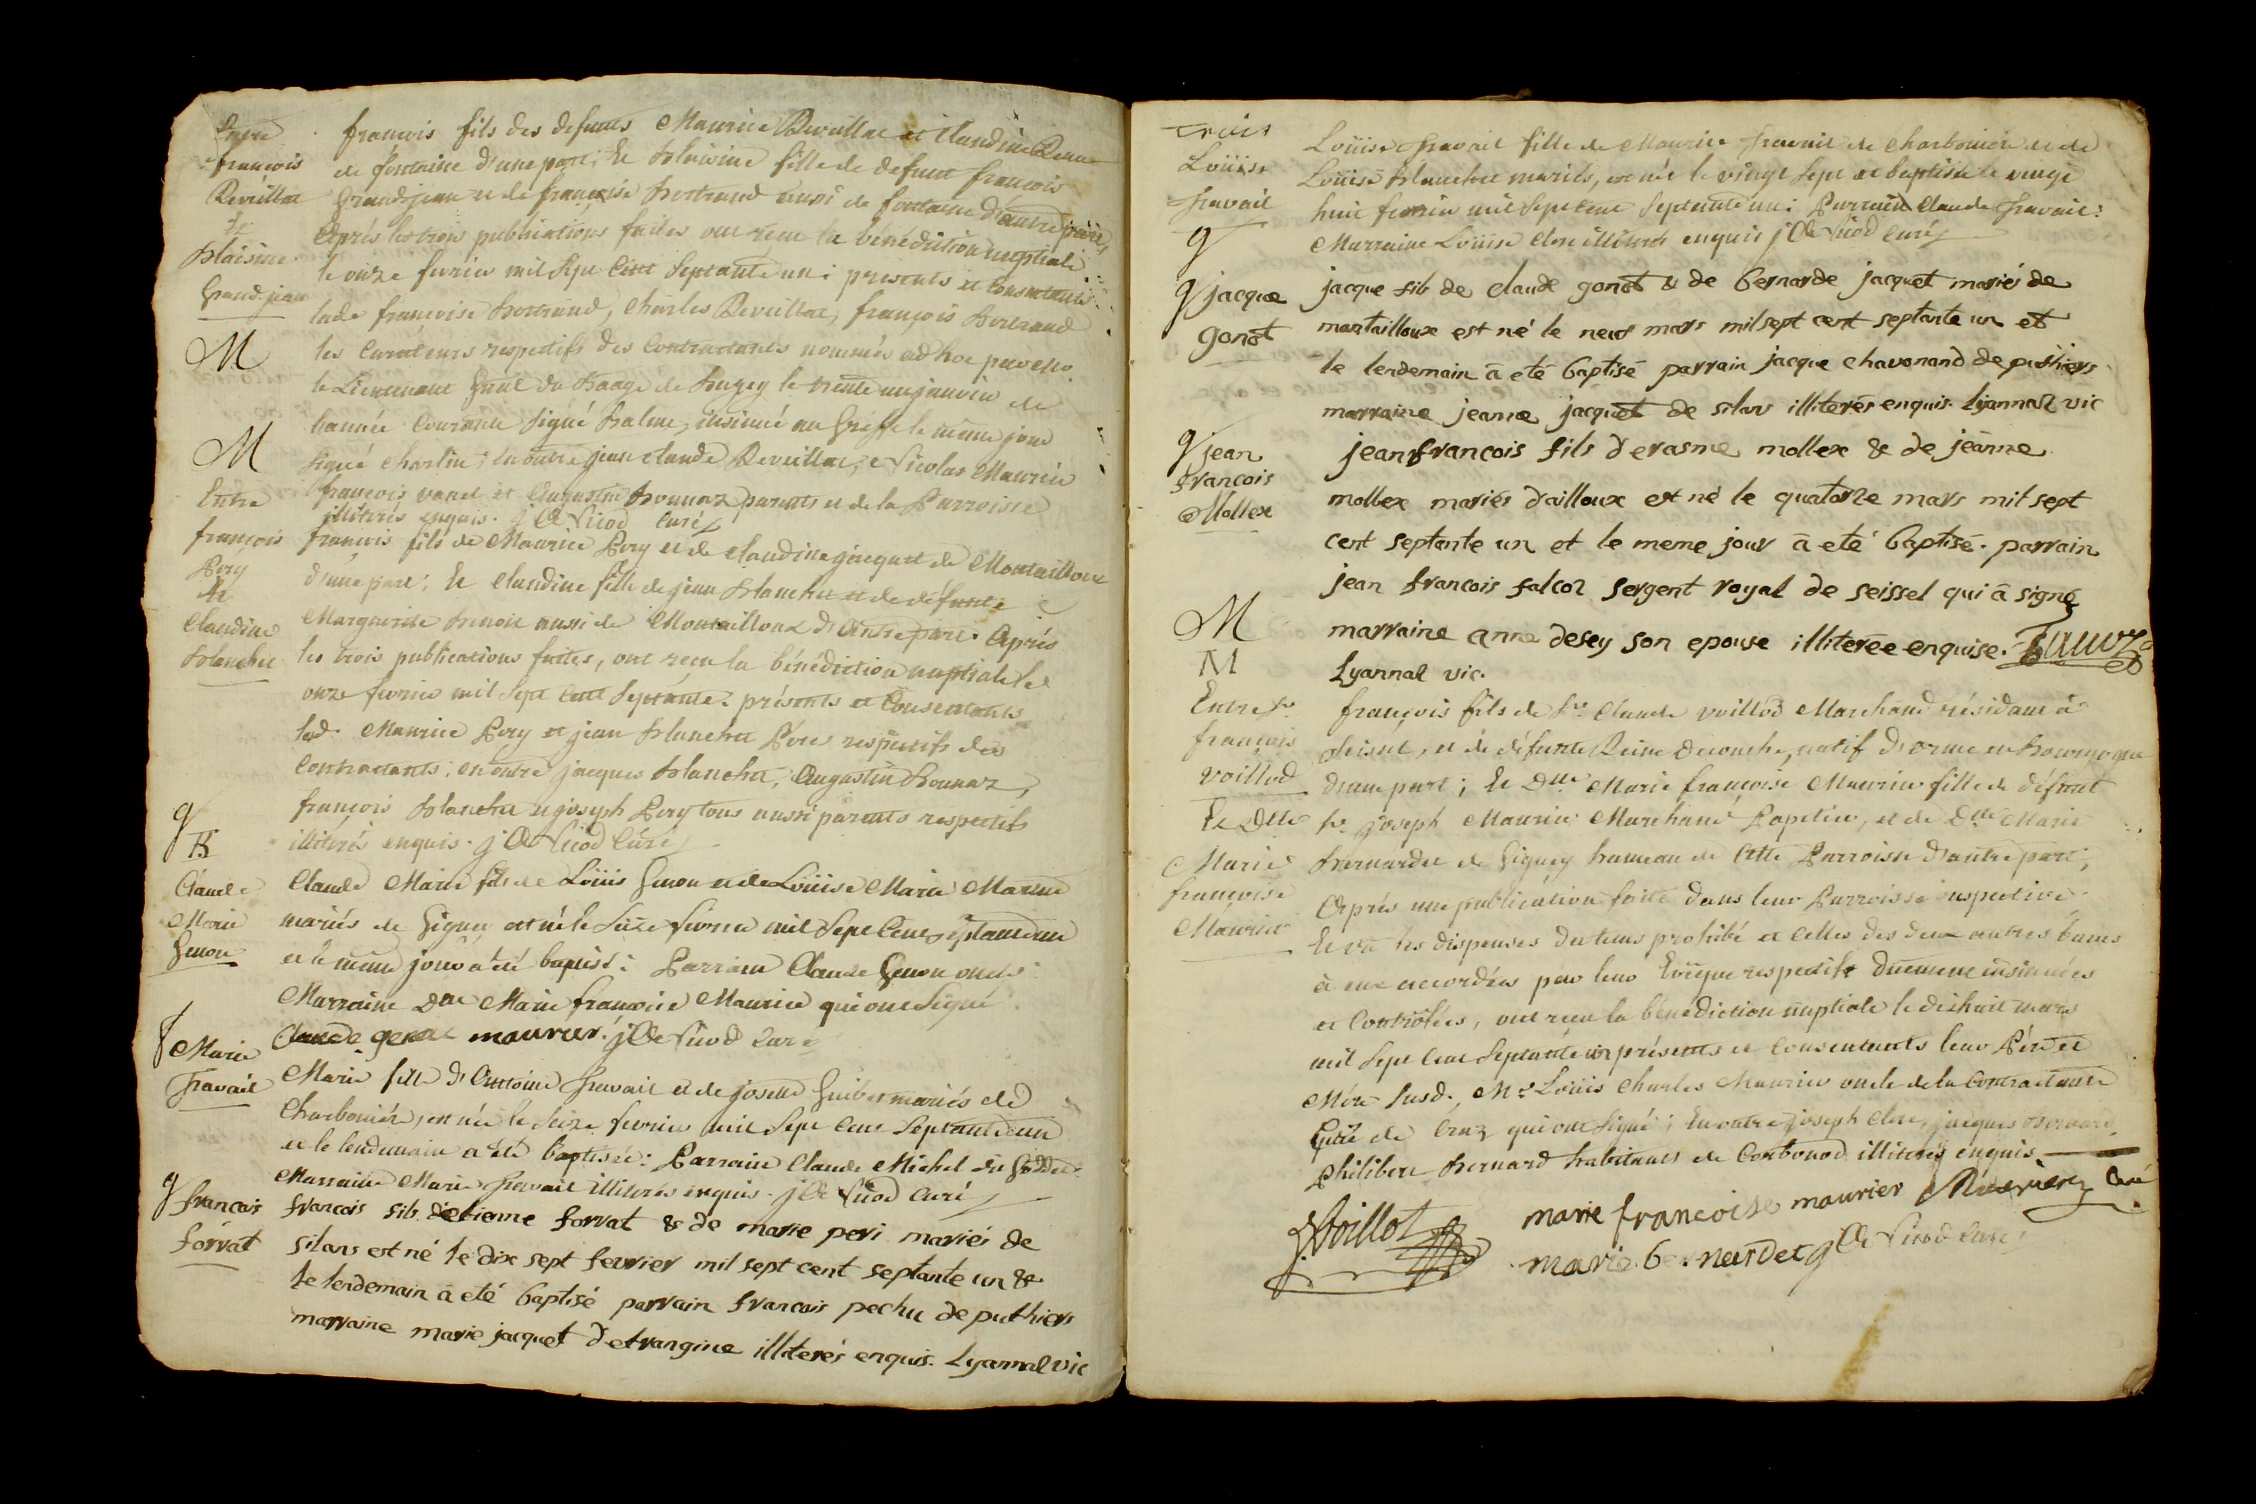 Entre
françois
Reveillat
Et
Blaisine
Grand-jean
M
françois fils des defunts Maurice Reveillat et Claudine
de fontaine d'une part; Et Blaisine fille de defunt françois
Grandjean et de françoise Bertrand aussi de fontaine d'autre part,
Après les trois publications faites ont reçu la bénédiction nuptiale
le onze fevrier mil sept cent septante un; presents et consentants
lade françoise Bertrand, Charles Reveillat, françois Bertrand
les curateurs respectifs des contractants nommés ad hoc par
le Lieutenant Gnal du Baage de Bugey le trente un janvier de
l'année courante signé Balme, insinué au Greffe le même jour
signé Charlin; en outre jean claude Reveillat, Nicolas Maurice
françois vanel et Augustin Bonnaz parents et de la Parroisse
illiterés enquis. j Nicod Curé
M
Entre
françois
Pery
Et
Claudine
Blanchet
françois fils de Maurice Pery et de claudine jacquet de Montailloux
d'une part; Et Claudine fille de jean Blanchet et de défunte
Marguerite Benoit aussi de Montailloux d'autre part. Après
les trois publications faites, ont reçu la bénédiction nuptiale le
onze fevrier mil sept cent septante: présents et Consentants
led. Maurice Pery et jean Blanchet Péres respectifs des
contractants; en outre jacques Blanchet, Augustin Bonnaz,
françois Blanchet et joseph Pery tous aussi parents respectifs
illiterés enquis. j Nicod Curé
g
B
Claude
Marie
Genou
Claude Marie fils de Loüis Genou et de Loüise Marie
mariés de Gignez est né le seize fevrier mil sept cent septante un
et le même jour a été baptisé: Parrain Claude Genou oncle
Marraine Dlle Marie françoise Maurice qui ont signé
Claude maurier. j Nicod Curé
f Marie
Travail
Marie fille d'Antoine Travail et de josette mariés de
Charbonière, est née le seize fevrier mil sept cent septante un
et le lendemain a été baptisée: Parrain Claude Michel
Marraine Marie Travail illiterés enquis. j Nicod Curé
g francois
forvat
francois fils detienne forvat & de marie peri mariés de
silans est né le dix sept fevrier mil sept cent septante un &
le lendemain a eté baptisé parrain francois pechu de puthiers
marraine marie jacquet detrangine illiterés enquis. Lyannaz vic
Loüise
Travail
g
Loüise Travail fille de Maurice Travail de Charbonière et de
Loüise Blanchet mariés, est née le vingt sept et baptisée le vingt
huit fevrier mil sept cent septante un: Parrain Claude Travail:
Marraine Loüise Clerc illiterés enquis j Nicod Curé
g jacque
gonot
jacque fils de claude gonot & de bernarde jacquet mariés de
montailloux est né le neuf mars mil sept cent septante un et
le lendemain a eté baptisé parrain jacque chavanand de puthiers
marraine jeanne jacquet de silans illiterés enquis. Lyannaz vic
g jean
francois
Mollex
jean francois fils derasme mollex & de jeanne
mollex mariés dailloux est né le quatorze mars mil sept
cent septante un et le meme jour a eté baptisé. parrain
jean francois falcoz sergent royal de seissel qui a signé
marraine anne desey son epouse illiterée enquise.
Lyannaz vic.
M
M
Entre Sr
françois
Voillod
Et Dlle
Marie
françoise
Maurier
françois fils de Sr Claude Voillod Marchand résidant à
Seissel, et de défunte Reine natif d'orme en Bourgogne
d'une part; Et Dlle Marie françoise Maurier fille de défunt
Sr joseph Maurier Marchand Papetier, et de Dlle Marie
Bernardet de Gignez hameau de cette Parroisse d'autre part;
Après une publication faite dans leur Parroisse respective
Et vu les dispenses du tems prohibé et celles des deux autres bancs
à eux accordées par leur Evêque respectifs duement insinuées
et controlées, ont reçu la bénédiction nuptiale le dixhuit mars
mil sept cent septante un présents et consentants leur Pére et
Mére susd. Mre Loüis Charles Maurier oncle de la Contractante
Curé de qui ont signé; En outre joseph Clerc, jacques Bernard,
Philibert Bernard habitants de Corbonod illiterés enquis
Voillot marie francoise maurier Maurier Curé
marie bernardet j Nicod Curé